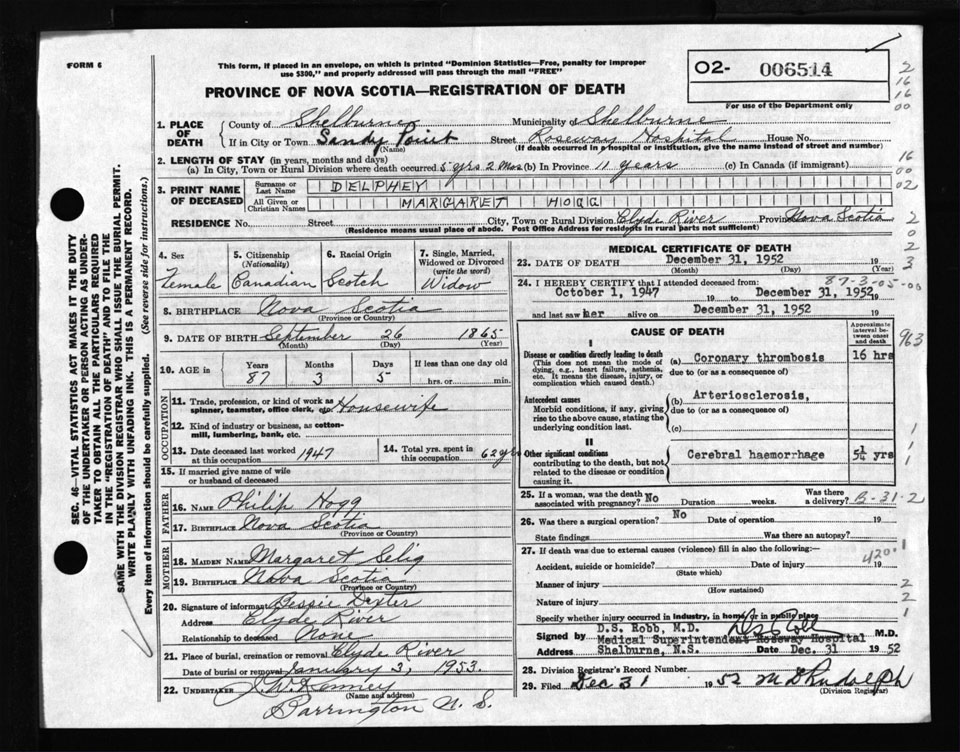 FORM 6
This form, if placed in an envelope, on which is printed "Dominion Statistics—Free, penalty for improper
use $300," and properly addressed will pass through the mail "FREE"
02- 006514
For use of the Department only
PROVINCE OF NOVA SCOTIA—REGISTRATION OF DEATH
1. PLACE OF DEATH
County of Shelburne Municipality of Shelburne
If in City or Town Sandy Point Street Roseway Hospital House No.
(Name) (If death occurred in a hospital or institution, give the name instead of street and number)
2. LENGTH OF STAY (in years, months and days)
(a) In City, Town or Rural Division where death occurred 5 yrs 2 mos (b) In Province 11 years (c) In Canada (if immigrant)
3. PRINT NAME OF DECEASED
Surname or Last Name DELPHEY
All Given or Christian Names MARGARET HOGG
RESIDENCE No. Street City, Town or Rural Division Clyde River Province Nova Scotia
(Residence means usual place of abode. Post Office Address for residents in rural parts not sufficient)
4. Sex Female
5. Citizenship (Nationality) Canadian
6. Racial Origin Scotch
7. Single, Married, Widowed or Divorced (write the word) Widow
8. BIRTHPLACE Nova Scotia
(Province or Country)
9. DATE OF BIRTH September 26 1865
(Month) (Day) (Year)
10. AGE in Years 87 Months 3 Days 5 If less than one day old hrs. or min.
OCCUPATION
11. Trade, profession, or kind of work as spinner, teamster, office clerk, etc. Housewife
12. Kind of industry or business, as cotton-mill, lumbering, bank, etc.
13. Date deceased last worked at this occupation 1947
14. Total yrs. spent in this occupation 62 yrs
15. If married give name of wife or husband of deceased
FATHER
16. NAME Philip Hogg
17. BIRTHPLACE Nova Scotia
(Province or Country)
MOTHER
18. MAIDEN NAME Margaret Selig
19. BIRTHPLACE Nova Scotia
(Province or Country)
20. Signature of informant Bessie Dexter
Address Clyde River
Relationship to deceased None
21. Place of burial, cremation or removal Clyde River
Date of burial or removal January 3, 1953.
22. UNDERTAKER J. W. Kenney
(Name and address)
Barrington N. S.
MEDICAL CERTIFICATE OF DEATH
23. DATE OF DEATH December 31, 1952 19
(Month) (Day) (Year)
24. I HEREBY CERTIFY that I attended deceased from: 87-3-05-00
October 1, 1947 19 to December 31, 1952 19
and last saw her alive on December 31, 1952
CAUSE OF DEATH
Approximate interval between onset and death
I
Disease or condition directly leading to death
(This does not mean the mode of dying, e.g., heart failure, asthenia, etc. It means the disease, injury, or complication which caused death.)
(a) Coronary thrombosis 16 hrs
due to (or as a consequence of)
Antecedent causes
Morbid conditions, if any, giving rise to the above cause, stating the underlying condition last.
(b) Arteriosclerosis,
due to (or as a consequence of)
(c)
II
Other significant conditions
contributing to the death, but not related to the disease or condition causing it.
Cerebral haemorrhage 5¼ yrs
25. If a woman, was the death associated with pregnancy? No Duration weeks. Was there a delivery? B-31-2
26. Was there a surgical operation? No Date of operation 19
State findings Was there an autopsy?
27. If death was due to external causes (violence) fill in also the following:—
Accident, suicide or homicide? Date of injury 19
(State which)
420.1
Manner of injury
(How sustained)
Nature of injury
Specify whether injury occurred in industry, in home, or in public place
D.S. Robb, M.D.
Signed by Medical Superintendent Roseway Hospital M.D.
Address Shelburne, N.S. Date Dec. 31 1952
28. Division Registrar's Record Number
29. Filed Dec 31 1952 M D Rudolph
(Division Registrar)
SEC. 46—VITAL STATISTICS ACT MAKES IT THE DUTY
OF THE UNDERTAKER OR PERSON ACTING AS UNDER-
TAKER TO OBTAIN ALL THE PARTICULARS REQUIRED
IN THE "REGISTRATION OF DEATH" AND TO FILE THE
SAME WITH THE DIVISION REGISTRAR WHO SHALL ISSUE THE BURIAL PERMIT.
WRITE PLAINLY WITH UNFADING INK. THIS IS A PERMANENT RECORD.
Every item of information should be carefully supplied. (See reverse side for instructions.)
2
16
16
00
16
00
02
2
0
2
3
963
1
1
1
2
2
1